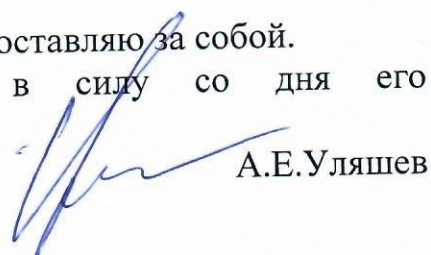 оставляю за собой.
в силу со дня его
А.Е.Уляшев